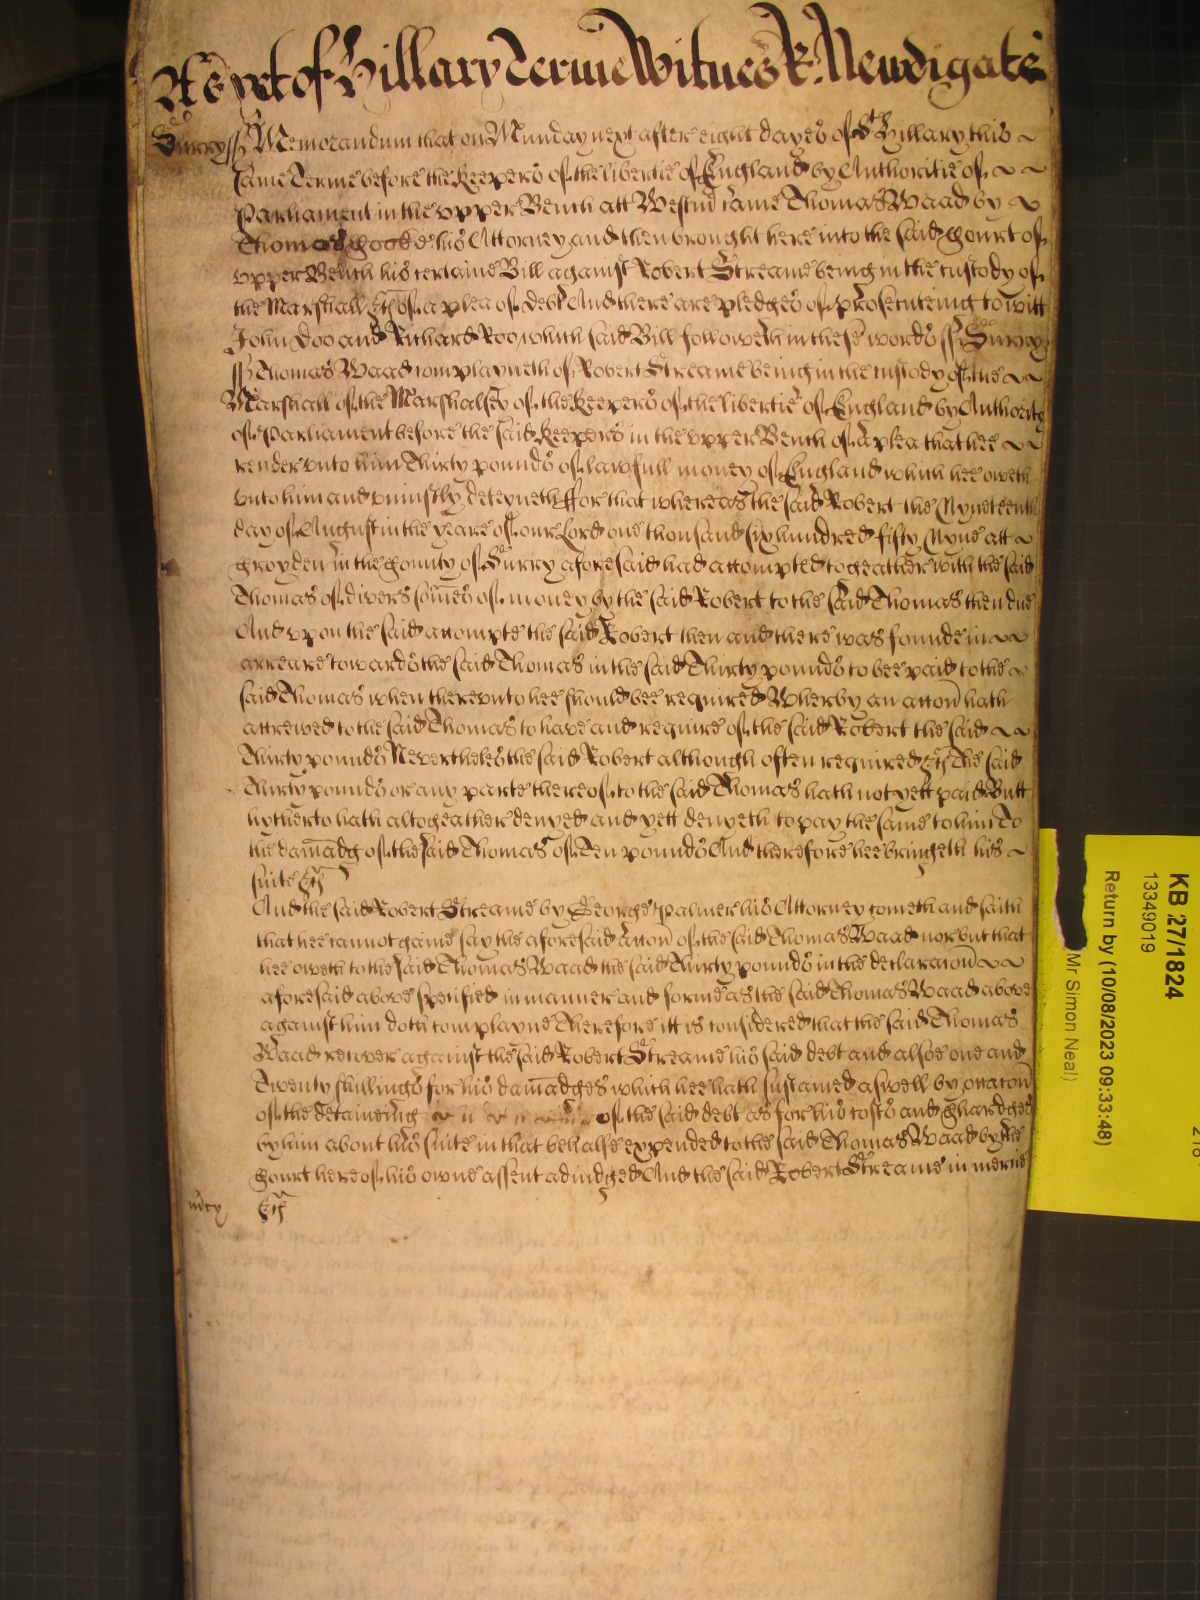 As yet of Hillary Terme Witnes R: Newdigate
Surry ss Memorandum that on Munday next after eight dayes of St Hillary this
same Terme before the Keepers of the libertie of England by Authoritie of
Parliament in the upper Bench att Westmr came Thomas Waad by
Thomas Cooke his Attorney and then brought here into the said Court of
upper Bench his certaine Bill against Robert Streame being in the custody of
the Marshall &c of a plea of debt And there are pledges of prosecuteing to witt
John Doo and Richard Roo which said Bill followeth in these words ss Surry
ss Thomas Waad complayneth of Robert Streame being in the custody of the
Marshall of the Marshalsey of the Keepers of the libertie of England by Authority
of Parliament before the said Keepers in the upper Bench of a plea that hee
render unto him Thirty pounds of lawfull money of England which hee oweth
unto him and uniustly deteyneth ffor that whereas the said Robert the Nyneteenth
day of August in the yeare of our Lord one thousand six hundred fifty Nyne att
Croyden in the County of Surry aforesaid had accompted togeather with the said
Thomas of divers somes of money by the said Robert to the said Thomas then due
And upon the said accompte the said Robert then and there was founde in
arreare towards the said Thomas in the said Thirty pounds to bee paid to the
said Thomas when thereunto hee should bee required Wherby an accon hath
accrewed to the said Thomas to have and require of the said Robert the said
Thirty pounds Nevertheles the said Robert although often required &c The said
Thirty pounds or any parte thereof to the said Thomas hath not yett paid Butt
hytherto hath altogeather denyed and yett denyeth to pay the same to him To
the damadg of the said Thomas of Ten pounds And therefore hee bringeth his
suite &c
And the said Robert Streame by George Palmer his Attorney cometh and saith
that hee cannot gaine say the aforesaid accon of the said Thomas Waad nor but that
hee oweth to the said Thomas Waad the said Thirty pounds in the declaracion
aforesaid above specified in manner and forme as the said Thomas Waad above
against him doth complayne Therefore itt is considered that the said Thomas
Waad recover against the said Robert Streame his said debt and alsoe one and
Twenty shillings for his damadges which hee hath sustained aswell by occacon
of the detaineing of the said debt as for his costs and Chardges
by him about his suite in that behalfe expended to the said Thomas Waad by the
Court here of his owne assent adiudged And the said Robert Streame in mercie
&c
KB 27/1824
13349019
Return by (10/08/2023 09:33:48)
Mr Simon Neal)